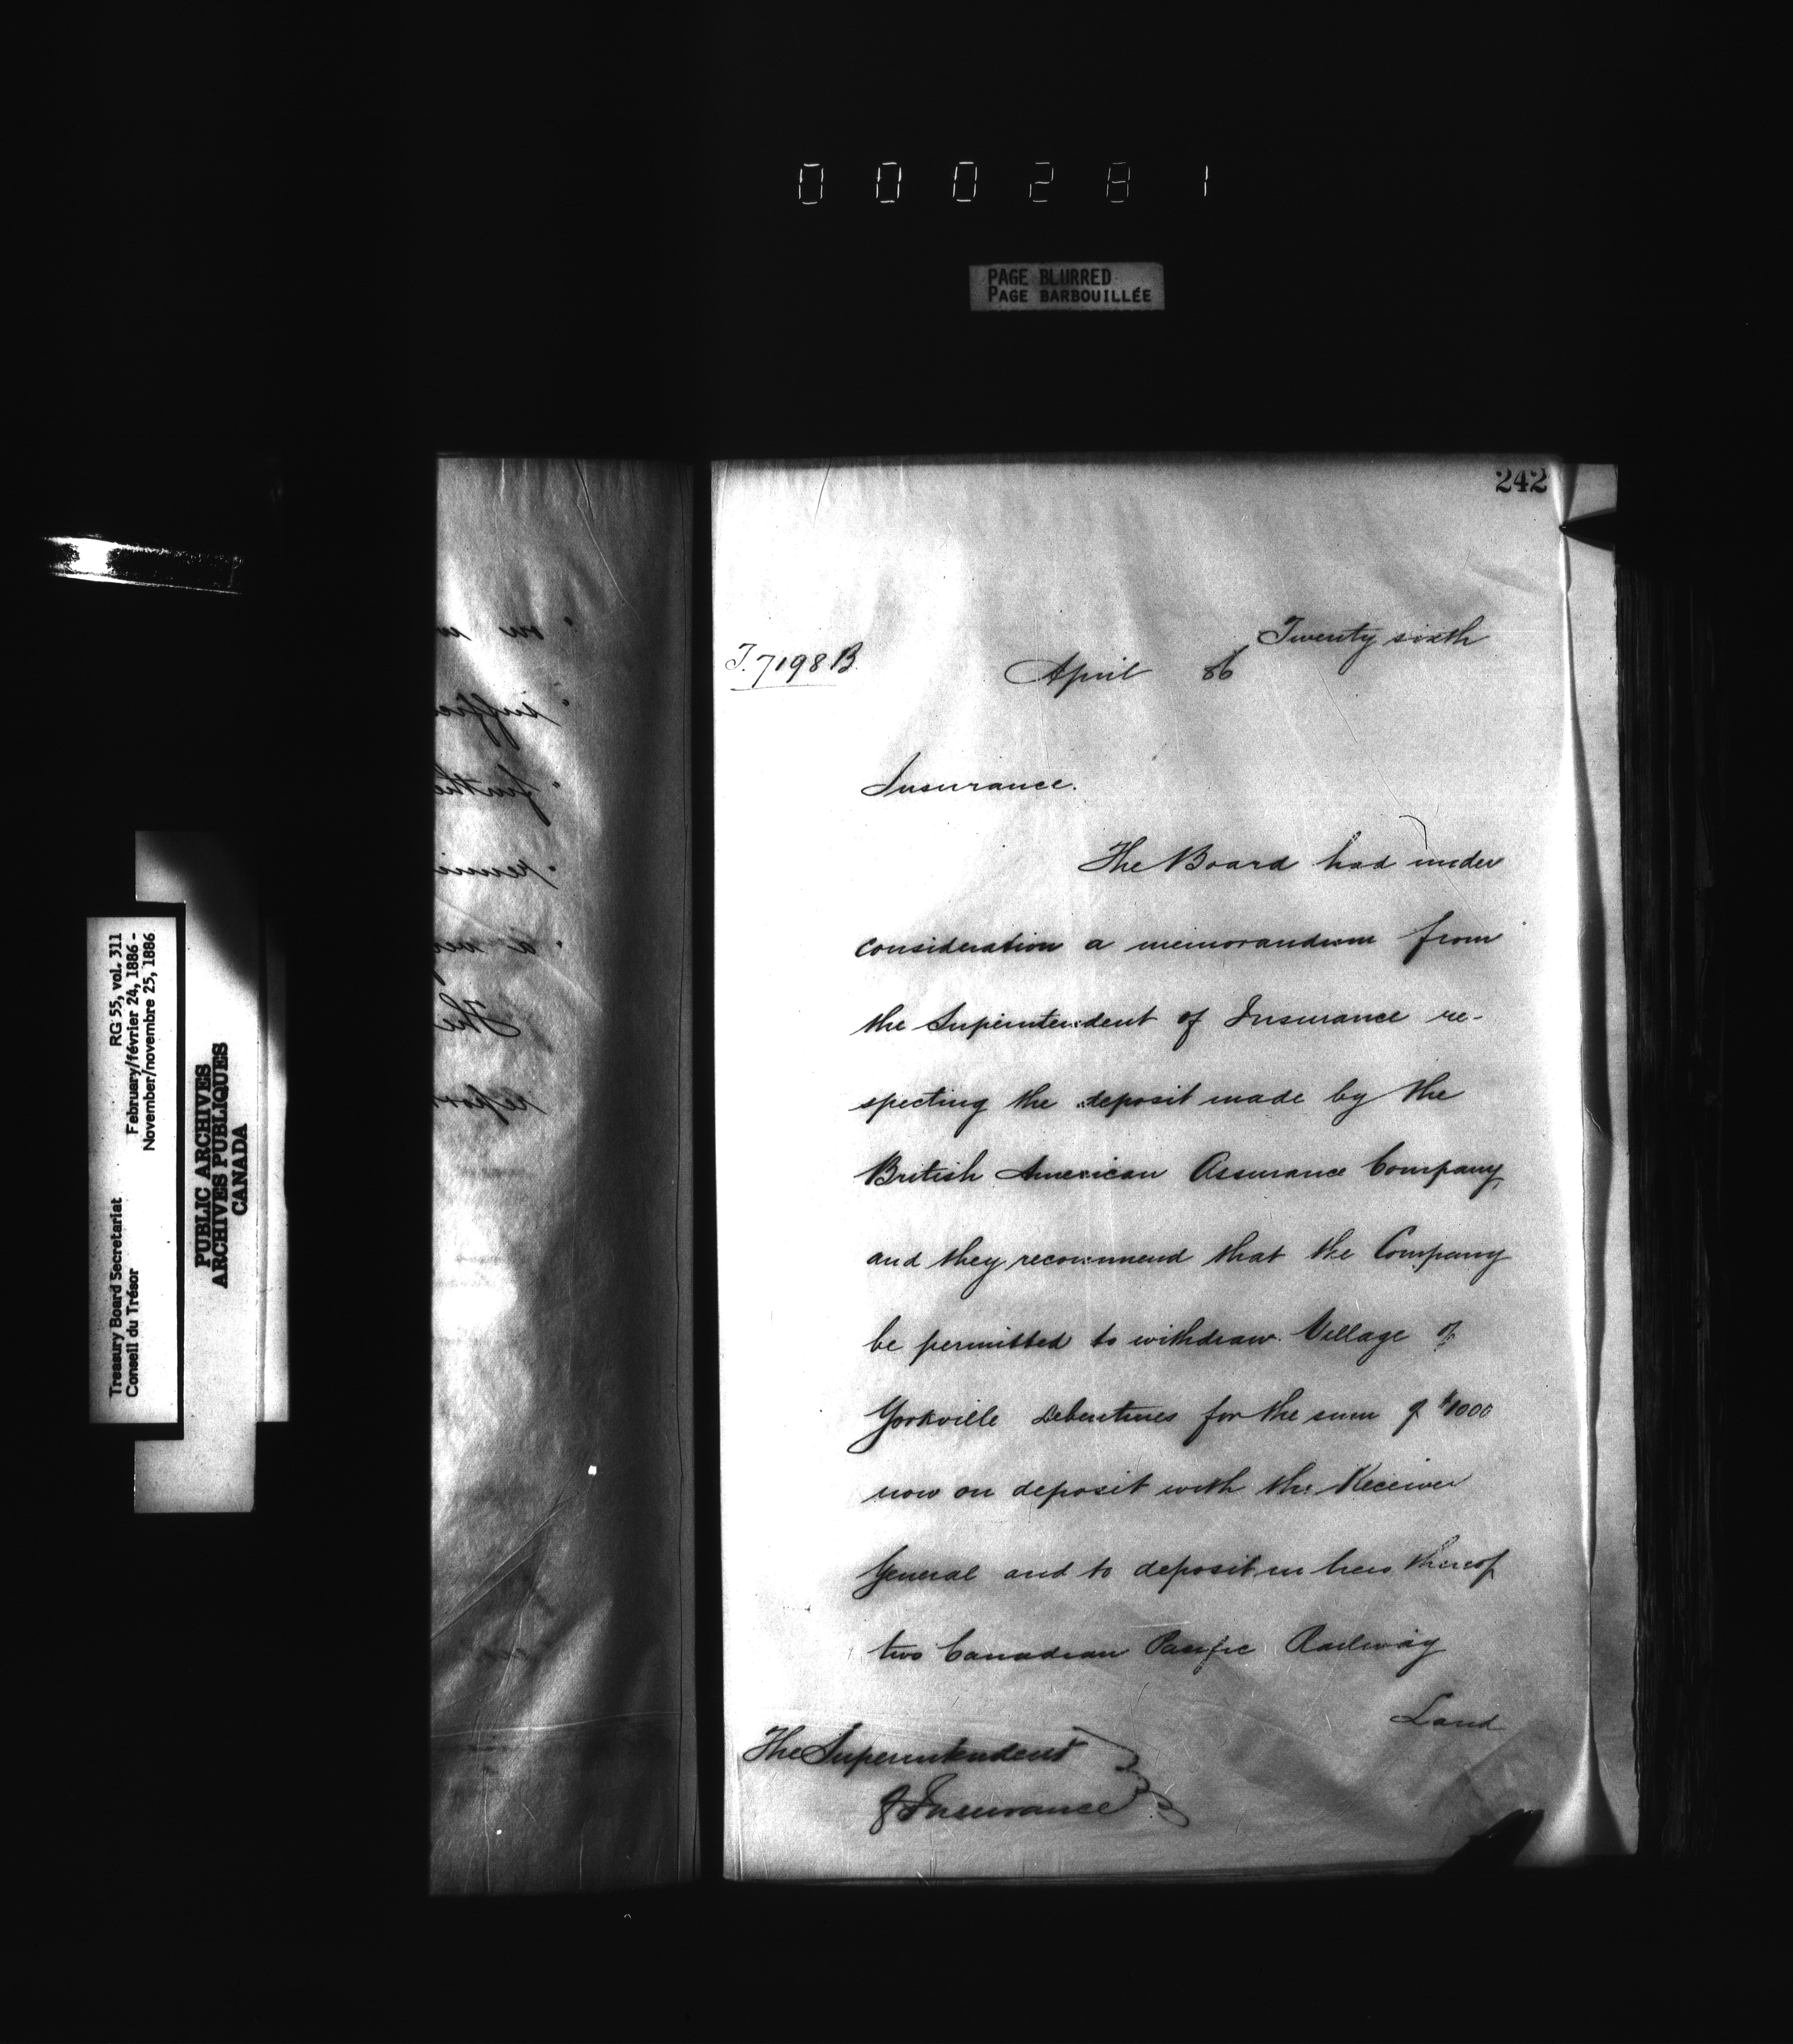 000281
PAGE BLURRED
PAGE BARBOUILLÉE
242
Twenty sixth
T. 7198 B.
April 86
Insurance.
The Board had under
consideration a memorandum from
the Superintendent of Insurance re-
specting the deposit made by the
British American Assurance Company,
and they recommend that the Company
be permitted to withdraw Village of
Yorkville Debentures for the sum of $1000
now on deposit with the Receiver
General and to deposit in lieu thereof
two Canadian Pacific Railway
Land
The Superintendent
of Insurance
Treasury Board Secretariat RG 55, vol. 311
Conseil du Trésor February/février 24, 1886 -
November/novembre 25, 1886
PUBLIC ARCHIVES
ARCHIVES PUBLIQUES
CANADA